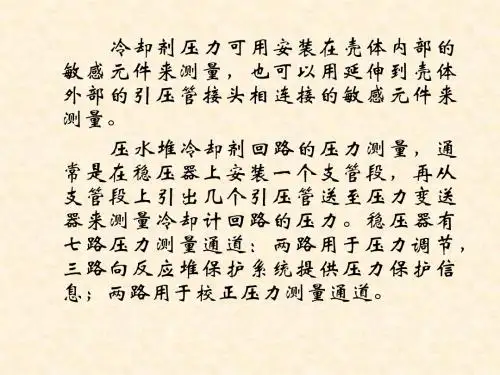 冷却剂压力可用安装在壳体内部的
敏感元件来测量，也可以用延伸到壳体
外部的引压管接头相连接的敏感元件来
测量。
压水堆冷却剂回路的压力测量，通
常是在稳压器上安装一个支管段，再从
支管段上引出几个引压管送至压力变送
器来测量冷却计回路的压力。稳压器有
七路压力测量通道：两路用于压力调节，
三路向反应堆保护系统提供压力保护信
息；两路用于校正压力测量通道。